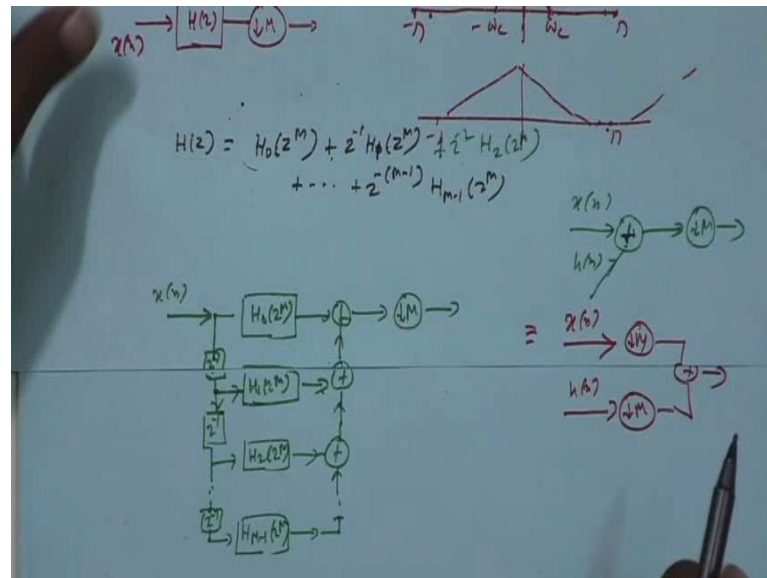 x(n) H(z) ↓M
-π -ωc ωc π
π
H(z) = H0(z^M) + z^-1 H1(z^M) + z^-2 H2(z^M)
+ ... + z^-(M-1) H_M-1(z^M)
x(n)
+ ↓M
h(n)
x(n)
H0(z^M) + ↓M
≡ x(n) ↓M
z^-1
H1(z^M) +
+
h(n) ↓M
z^-1
H2(z^M) +
z^-1
H_M-1(z^M)